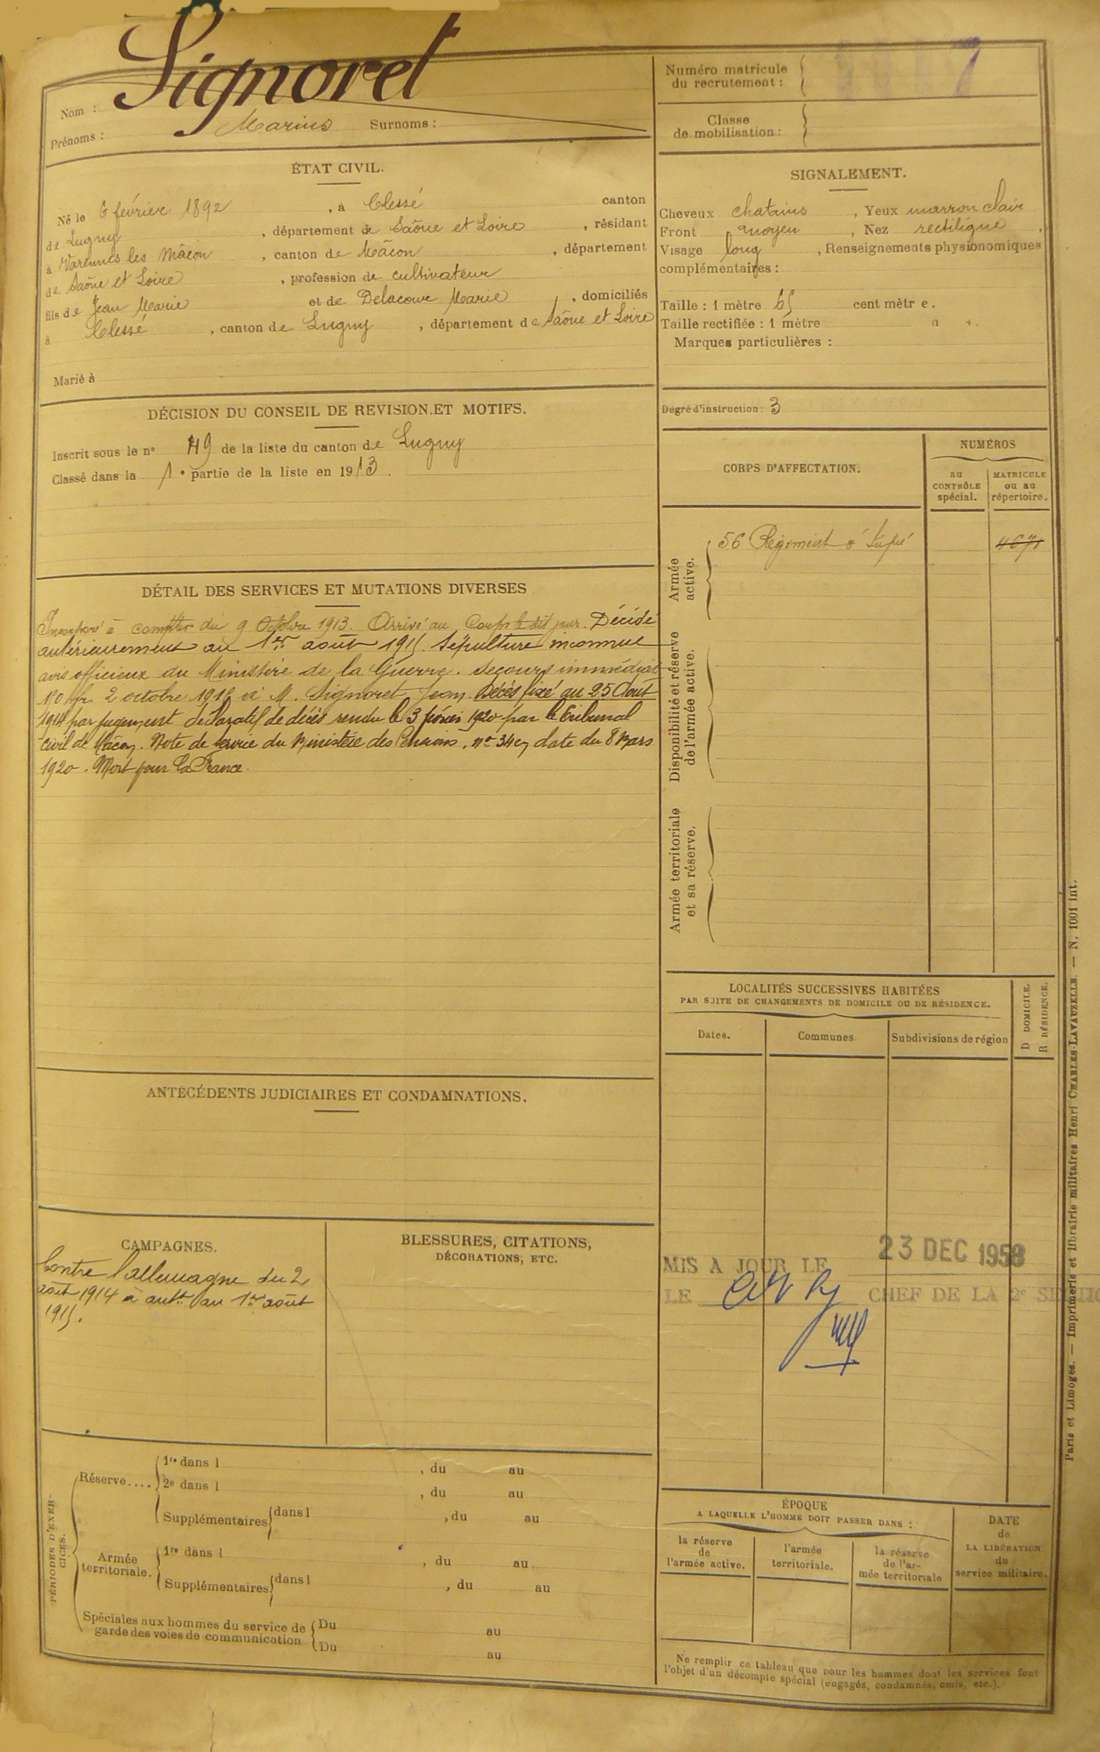 Nom : Signoret
Prénoms : Marius Surnoms :
Numéro matricule
du recrutement :
Classe
de mobilisation :
ÉTAT CIVIL.
Né le 6 février 1892, à Clessé canton
de Lugny, département de Saône et Loire, résidant
à Varennes les Mâcon, canton de Mâcon, département
de Saône et Loire, profession de cultivateur
fils de Jean Marie et de Delacour Marie, domiciliés
à Clessé, canton de Lugny, département de Saône et Loire
Marié à
SIGNALEMENT.
Cheveux chatains, Yeux marron clair
Front moyen, Nez rectiligne,
Visage long, Renseignements physionomiques
complémentaires :
Taille : 1 mètre 65 centimètre.
Taille rectifiée : 1 mètre
Marques particulières :
Degré d'instruction : 3
DÉCISION DU CONSEIL DE REVISION ET MOTIFS.
Inscrit sous le n° 49 de la liste du canton de Lugny
Classé dans la 1e partie de la liste en 1913.
CORPS D'AFFECTATION.
NUMÉROS
au
CONTRÔLE
spécial.
MATRICULE
ou au
répertoire.
Armée
active.
56 Régiment d'Infie
4671
Disponibilité et réserve
de l'armée active.
Armée territoriale
et sa réserve.
DÉTAIL DES SERVICES ET MUTATIONS DIVERSES
Incorporé à compter du 9 Octobre 1913. Arrivé au Corps le dit jour. Décédé
antérieurement au 1er août 1915. Sépulture inconnue
avis officieux du Ministère de la Guerre. Secours immédiat
150 fr. 2 octobre 1915 à M. Signoret Jean. Décès fixé au 25 Août
1914 par jugement déclaratif de décès rendu le 3 février 1920 par le Tribunal
civil de Mâcon. Note de service du Ministère des Pensions, n° 34 en date du 8 Mars
1920. Mort pour la France.
LOCALITÉS SUCCESSIVES HABITÉES
PAR SUITE DE CHANGEMENTS DE DOMICILE OU DE RÉSIDENCE.
Dates.
Communes
Subdivisions de région
D DOMICILE.
R RÉSIDENCE.
ANTÉCÉDENTS JUDICIAIRES ET CONDAMNATIONS.
CAMPAGNES.
Contre l'allemagne du 2
août 1914 à antt au 1er août
1915.
BLESSURES, CITATIONS,
DÉCORATIONS, ETC.
MIS A JOUR LE 23 DEC 1958
LE CHEF DE LA 2e SECTIO
PÉRIODES D'EXER-
CICES.
Réserve....
1re dans l, du au
2e dans l, du au
Supplémentaires dans l, du au
Armée
territoriale.
1re dans l, du au
Supplémentaires dans l, du au
Spéciales aux hommes du service de
garde des voies de communication
Du au
Du au
ÉPOQUE
A LAQUELLE L'HOMME DOIT PASSER DANS :
la réserve
de
l'armée active.
l'armée
territoriale.
la réserve
de l'ar-
mée territoriale
DATE
de
LA LIBÉRATION
du
service militaire.
Ne remplir ce tableau que pour les hommes dont les services font
l'objet d'un décompte spécial (engagés, condamnés, omis, etc.).
Paris et Limoges. — Imprimerie et librairie militaires Henri CHARLES-LAVAUZELLE. — N. 1001 int.